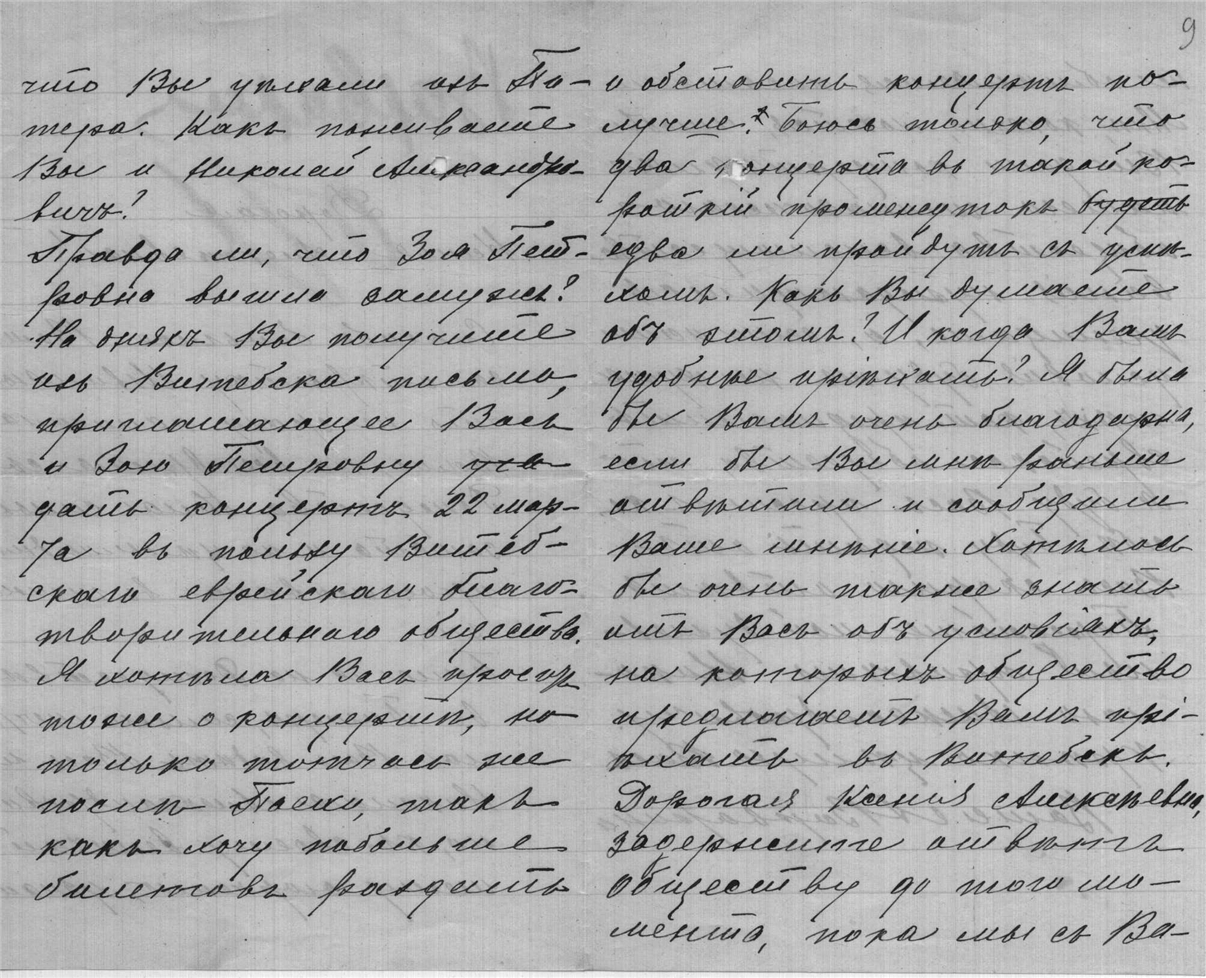 9
что Вы уѣхали изъ Пи-
тера. Какъ поживаете
Вы и Николай Александро-
вичъ?
Правда ли, что Зоя Пет-
ровна вышла замужъ?
На дняхъ Вы получите
изъ Витебска письмо,
приглашающее Васъ
и Зою Петровну
дать концертъ 22 мар-
та въ пользу Витеб-
скаго еврейскаго благо-
творительнаго общества.
Я хотѣла Васъ просить
тоже о концертѣ, но
только тотчасъ же
послѣ Пасхи, такъ
какъ хочу побольше
билетовъ раздать
и обставить концертъ по-
лучше. Боюсь только, что
два концерта въ такой ко-
роткій промежутокъ будутъ
едва ли пройдутъ съ успѣ-
хомъ. Какъ Вы думаете
объ этомъ? И когда Вамъ
удобнѣе пріѣхать? Я была
бы Вамъ очень благодарна,
если бы Вы мнѣ раньше
отвѣтили и сообщили
Ваше мнѣніе. Хотѣлось
бы очень также знать
отъ Васъ объ условіяхъ,
на которыхъ общество
предлагаетъ Вамъ прі-
ѣхать въ Витебскъ.
Дорогая Ксенія Алексѣевна,
задержите отвѣтъ
Обществу до того мо-
мента, пока мы съ Ва-